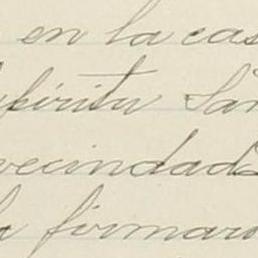 en la cas
Espiritu San
vecindad
la firmaro